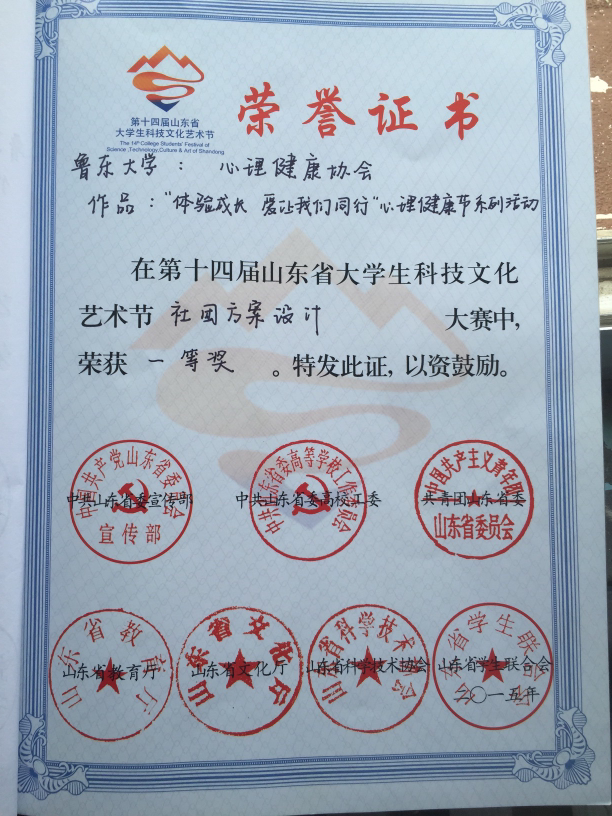 荣誉证书
第十四届山东省
大学生科技文化艺术节
The 14th College Students' Festival of
Science ,Technology,Culture & Art of Shandong
鲁东大学：心理健康协会
作品："体验成长 爱让我们同行"心理健康节系列活动
在第十四届山东省大学生科技文化
艺术节 社团方案设计 大赛中，
荣获 一等奖 。特发此证，以资鼓励。
中国共产党山东省委员会
宣传部
中共山东省委宣传部
中共山东省委高等学校工作委员会
中共山东省委高校工委
中国共产主义青年团
山东省委员会
共青团山东省委
山东省教育厅
山东省教育厅
山东省文化厅
山东省文化厅
山东省科学技术协会
山东省科学技术协会
山东省学生联合会
山东省学生联合会
二〇一五年